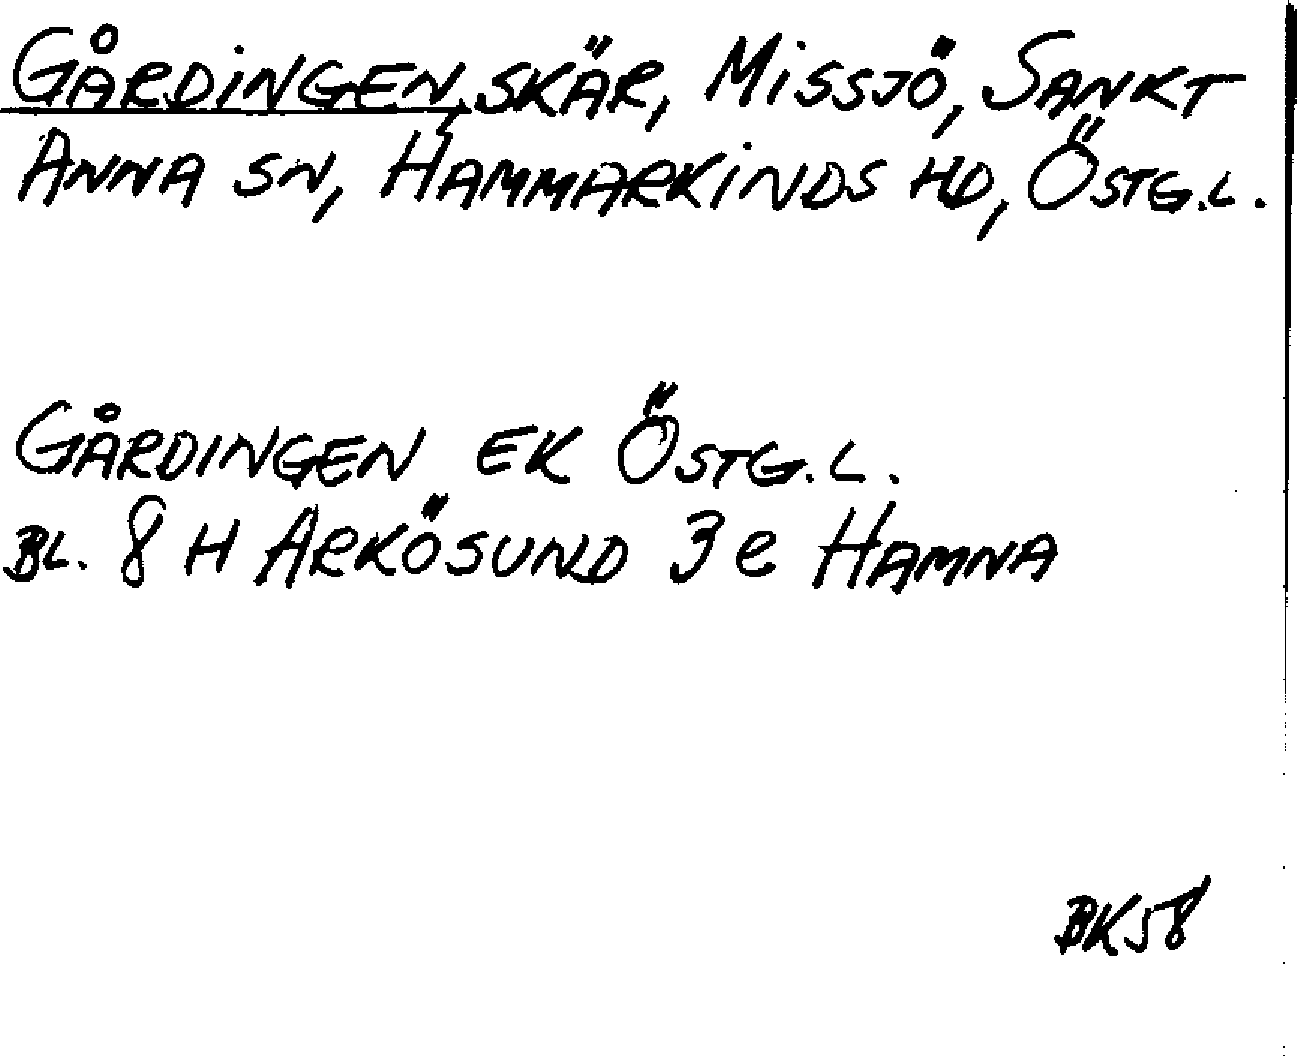 GÅRDINGEN, SKÄR, MISSJÖ, SANKT
ANNA SN, HAMMARKINDS HD, ÖSTG.L.
GÅRDINGEN EK ÖSTG.L.
BL. 8 H ARKÖSUND 3 e HAMNA
BK58